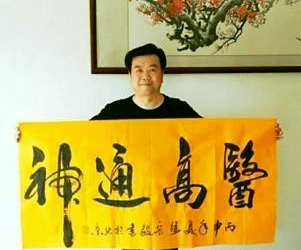 醫高通神
丙申年夏書於北京